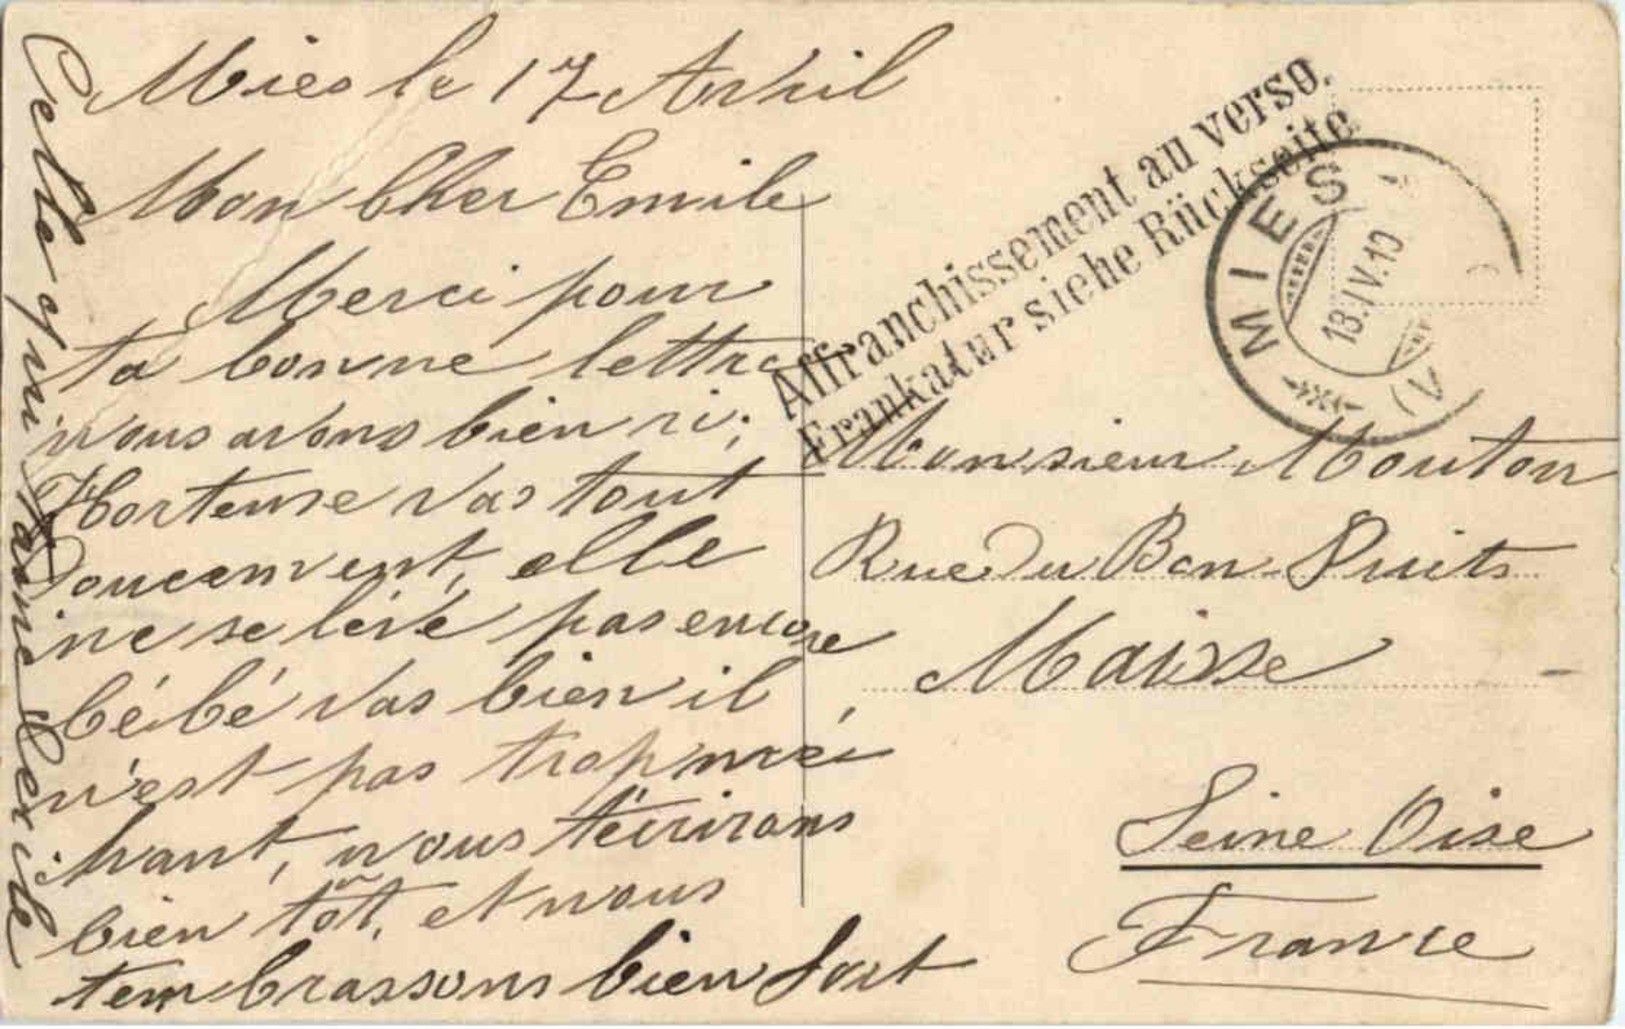 Mies le 17 Avril
Mon Cher Emile
Merci pour
ta bonne lettre
nous avons bien ri;
Hortense vas tout
Doucement, elle
ne se lève pas encore
bébé vas bien il
n'est pas trop mé
hant, nous t'écrirons
bien tôt, et nous
tembrassons bien fort
Celle qui t'aime
Affranchissement au verso.
Frankatur siehe Rückseite
MIES
(V
18.IV.10
Monsieur Mouton
Rue Du Bon Puits
Maisse
Seine Oise
France